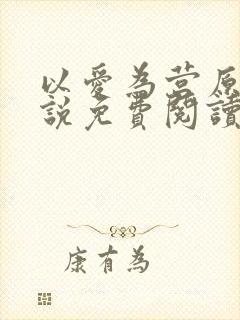 以愛為营原
說免費閱讀
康有為